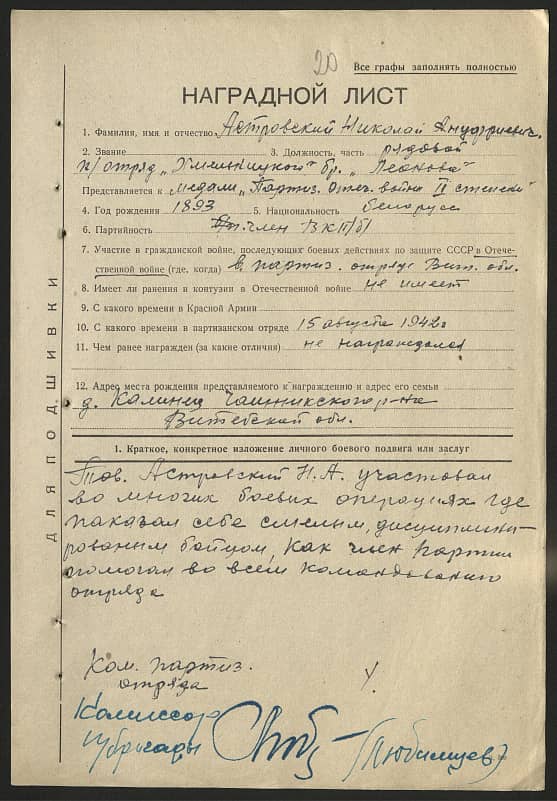 20
Все графы заполнять полностью
НАГРАДНОЙ ЛИСТ
1. Фамилия, имя и отчество Астровский Николай Ануфриевич
2. Звание 3. Должность, часть рядовой
п/отряд „Хмельницкого" бр. „Леонова"
Представляется к медали „Партиз. Отеч. войны II степени"
4. Год рождения 1893 5. Национальность белорусс
6. Партийность член ВКП/б/
7. Участие в гражданской войне, последующих боевых действиях по защите СССР в Отече-
ственной войне (где, когда) в партиз. отряде Вит. обл.
8. Имеет ли ранения и контузии в Отечественной войне не имеет
9. С какого времени в Красной Армии
10. С какого времени в партизанском отряде 15 августа 1942г
11. Чем ранее награжден (за какие отличия) не награждался
12. Адрес места рождения представляемого к награждению и адрес его семьи
д. Калинец Чашникского р-на
Витебской обл.
ДЛЯ ПОДШИВКИ
1. Краткое, конкретное изложение личного боевого подвига или заслуг
Тов. Астровский Н.А. участовал
во многих боевых операциях где
показал себя смелым, дисциплини-
рованым бойцом, как член партии
помогал во всем командованию
отряда
Ком. партиз.
отряда
Комиссар
бригады (Любимцев)